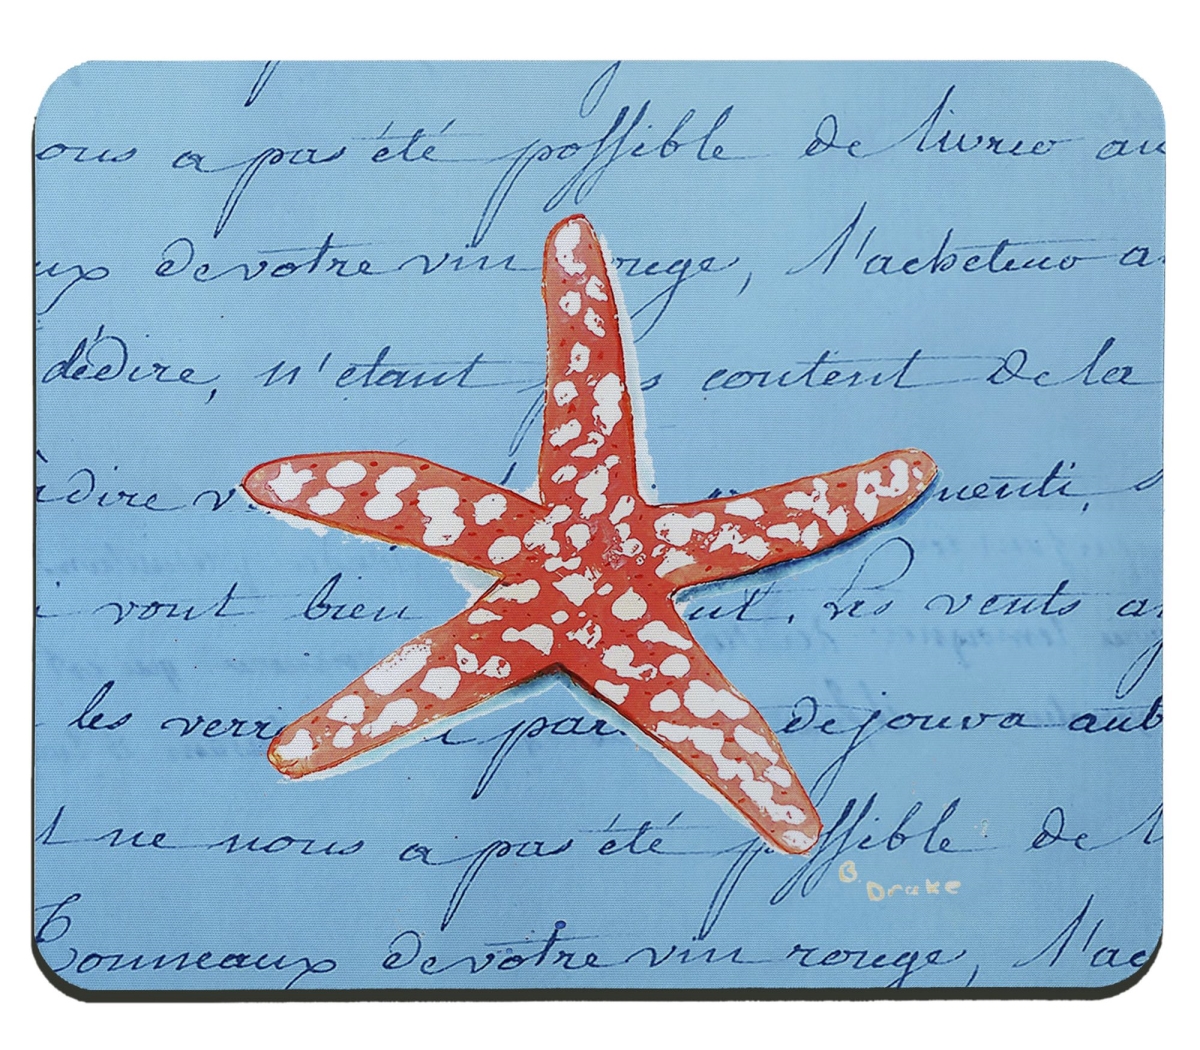 ous a pas été possible de livrer au
ux de votre vin rouge, l'acheteur a
dédire, n'étant p s content de la
dire v menti,
vout bien ut. Les vents a
les verr par dejouva aub
t ne nous a pas été possible de l
Tonneaux de votre vin rouge, l'ac
B. Drake